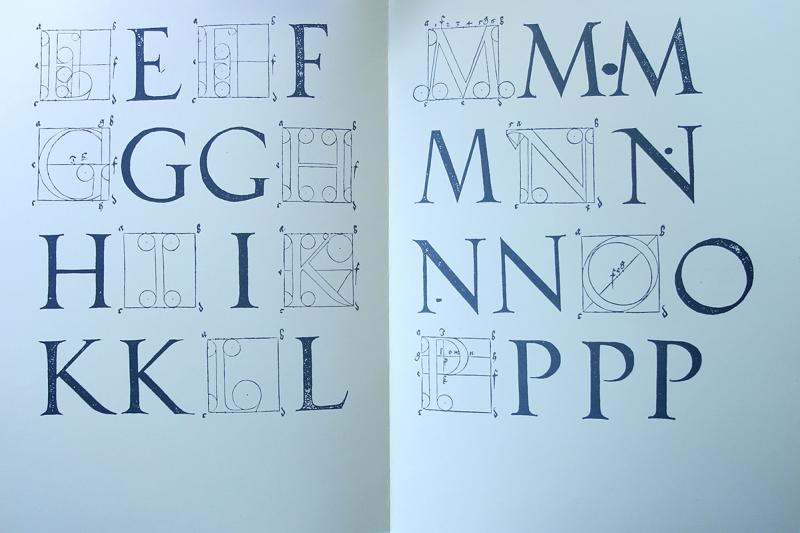 E E F F
G G G H
H I I K
K K L L
M M · M
M N N
N N O O
P P P P